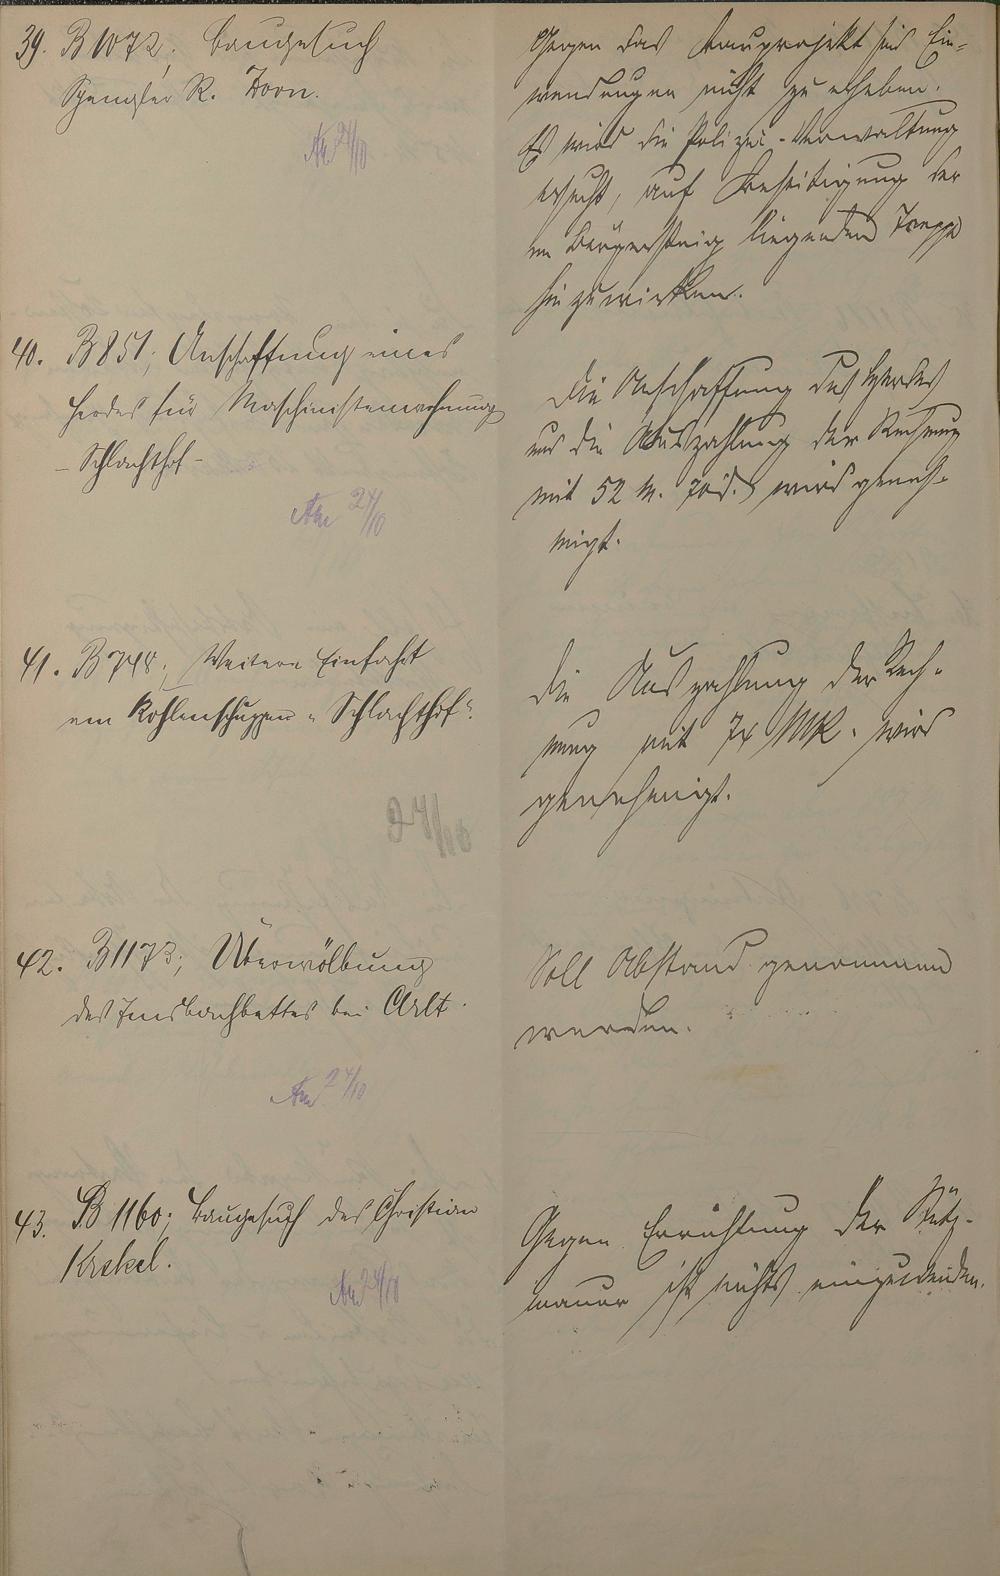 39. B 1072; Baugesuch
Spengler R. Zorn.
24/10
Gegen das Bauprojekt sind Ein-
wendungen nicht zu erheben.
Es wird die Polizei-Verwaltung
ersucht, auf Beseitigung der
im Bürgersteig liegenden Treppe
hinzuwirken.
40. B 851; Anschaffung eines
Herdes für Maschinistenwohnung
- Schlachthof -
24/10
Die Anschaffung des Herdes
und die Auszahlung der Rechnung
mit 52 M. 70 d. wird geneh-
migt.
41. B 748; Weitere Einfahrt
am Kohlenschuppen "Schlachthof".
24/10
Die Auszahlung der Rech-
nung mit 74 MK. wird
genehmigt.
42. B 1173; Überwölbung
des Insbachbettes bei Alt.
24/10
Soll Abstand genommen
werden.
43. B 1160; Baugesuch des Christian
Krekel.
24/10
Gegen Errichtung der Stütz-
mauer ist nichts einzuwenden.